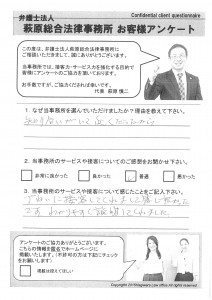 Confidential client questionnaire
弁護士法人
萩原総合法律事務所 お客様アンケート
この度は、弁護士法人萩原総合法律事務所に
ご相談いただきまして、誠にありがとうございます。
当事務所では、接客力・サービス力を強化する目的で
客様にアンケートのご協力を頂いております。
お手数ですが、ご協力くだされば幸いです。
代表 萩原 慎二
1. なぜ当事務所を選んでいただけましたか?理由を教えて下さい。
知り合いがいて近くだったから
2. 当事務所のサービスや接客についてのご感想をお聞かせ下さい。
非常に良かった
良かった
普通
悪かった
3. 当事務所のサービスや接客について感じたことをご記入下さい。
ていねいに接客してくれまして
です わかりやすく説明してくれました
アンケートのご協力ありがとうございます。
こちらの情報を匿名でホームページに
掲載いたします。(不許可の方は下記にチェックを
お願いします)
掲載は控えてほしい